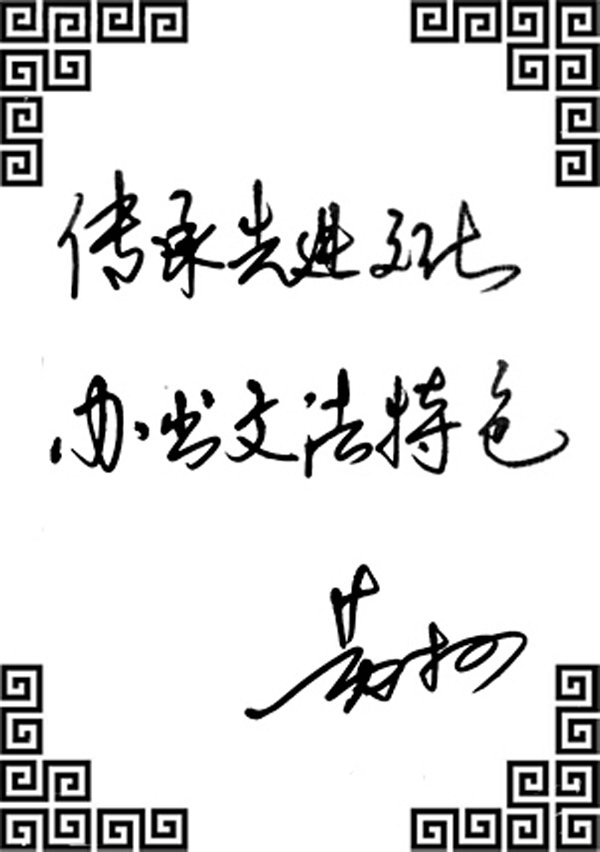 传承先进文化
办出文法特色